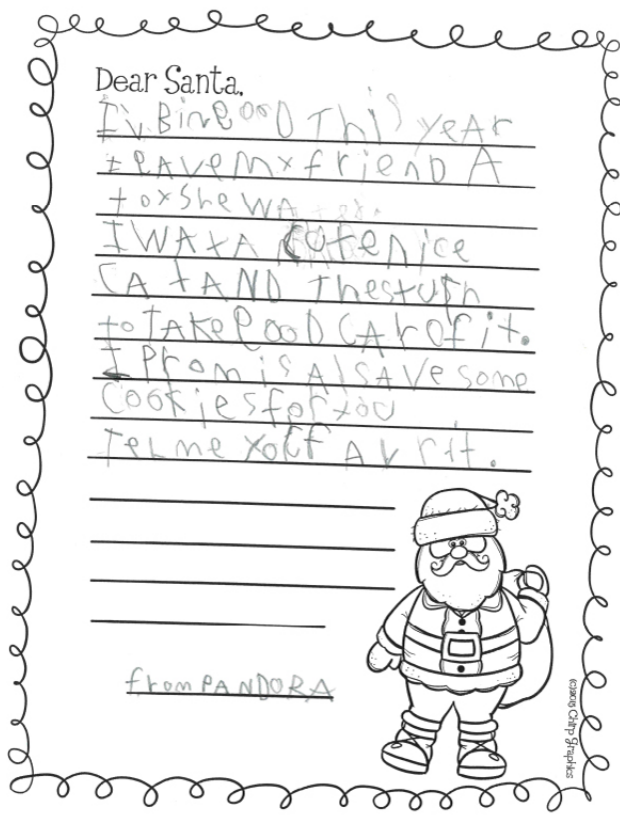 Dear Santa,
I'v Bin gooD This yeAr
gAve my frienD A
toy She WA
I WAtA Cofenice
CAt AND Thestufn
to TAke gooD CAr of it.
I Promis AlSAVe some
Cookies for you
Telme your FAvrit.
from PANDORA
(c)2015 Chirp Graphics